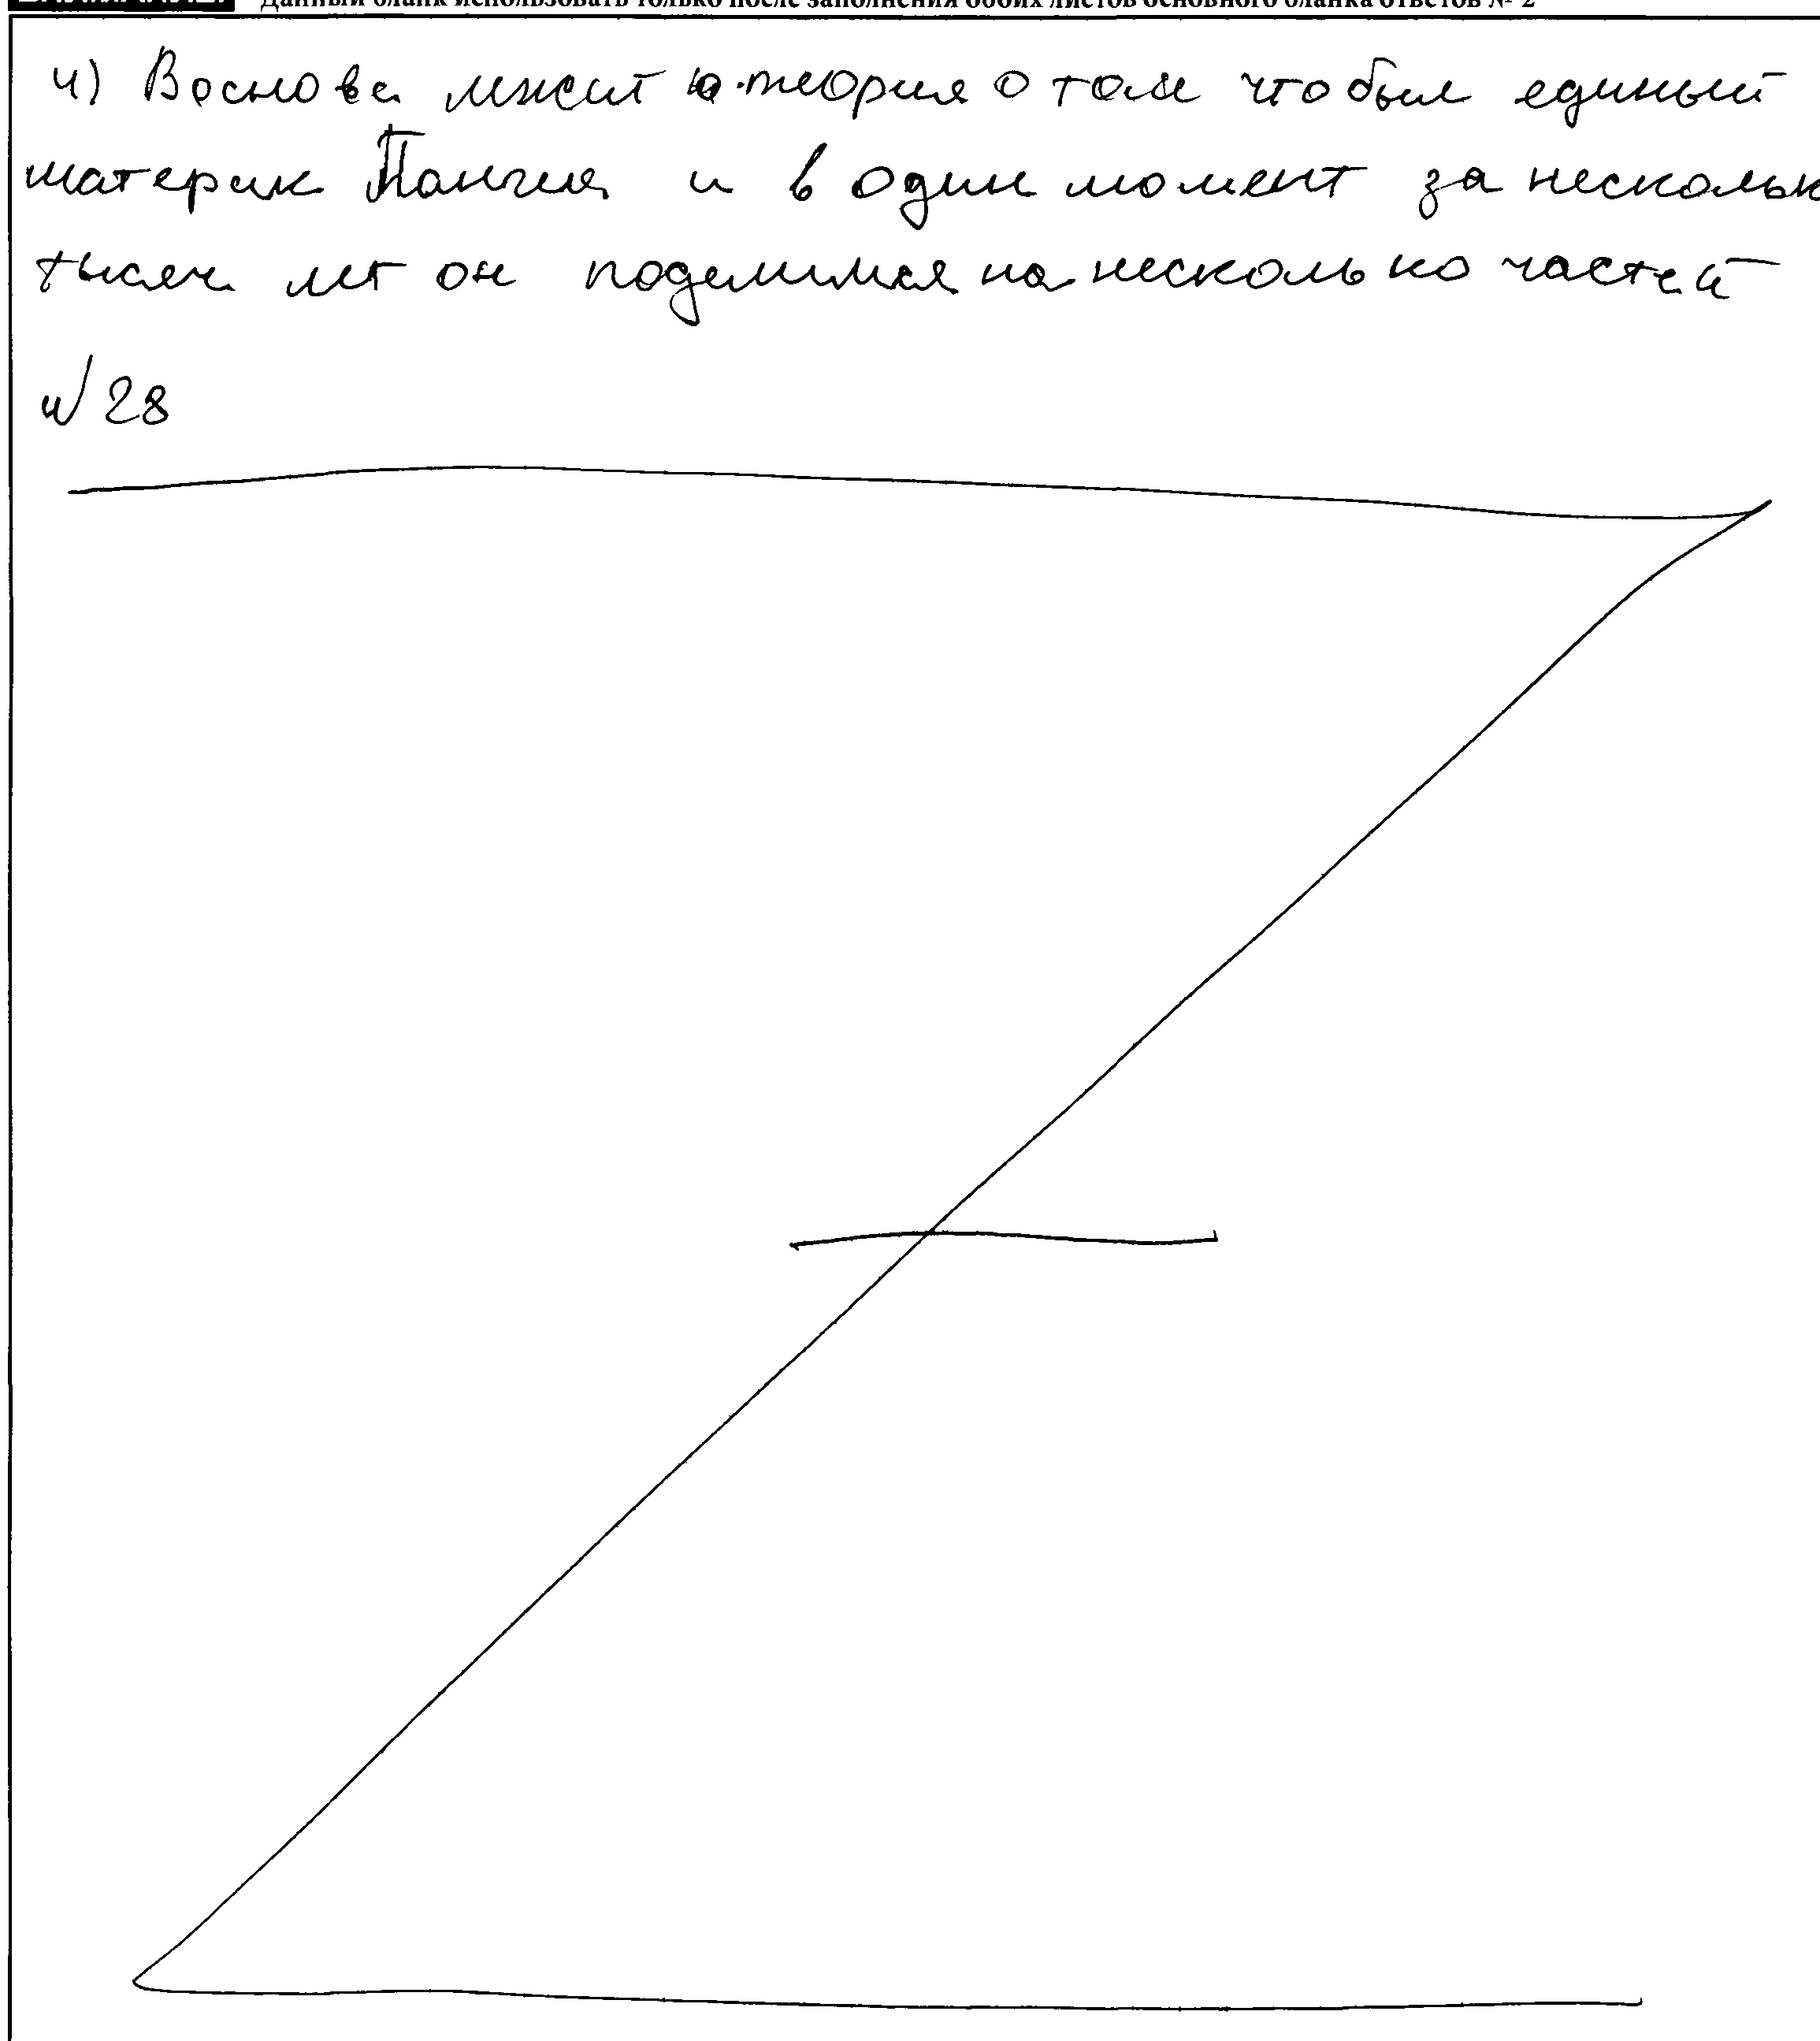 Данный бланк использовать только после заполнения обоих листов основного бланка ответов № 2
4) Воснове лежит теория о том что был единый
материк Пангея и в один момент за нескольк
тысяч лет он поделился на несколько частей
№28